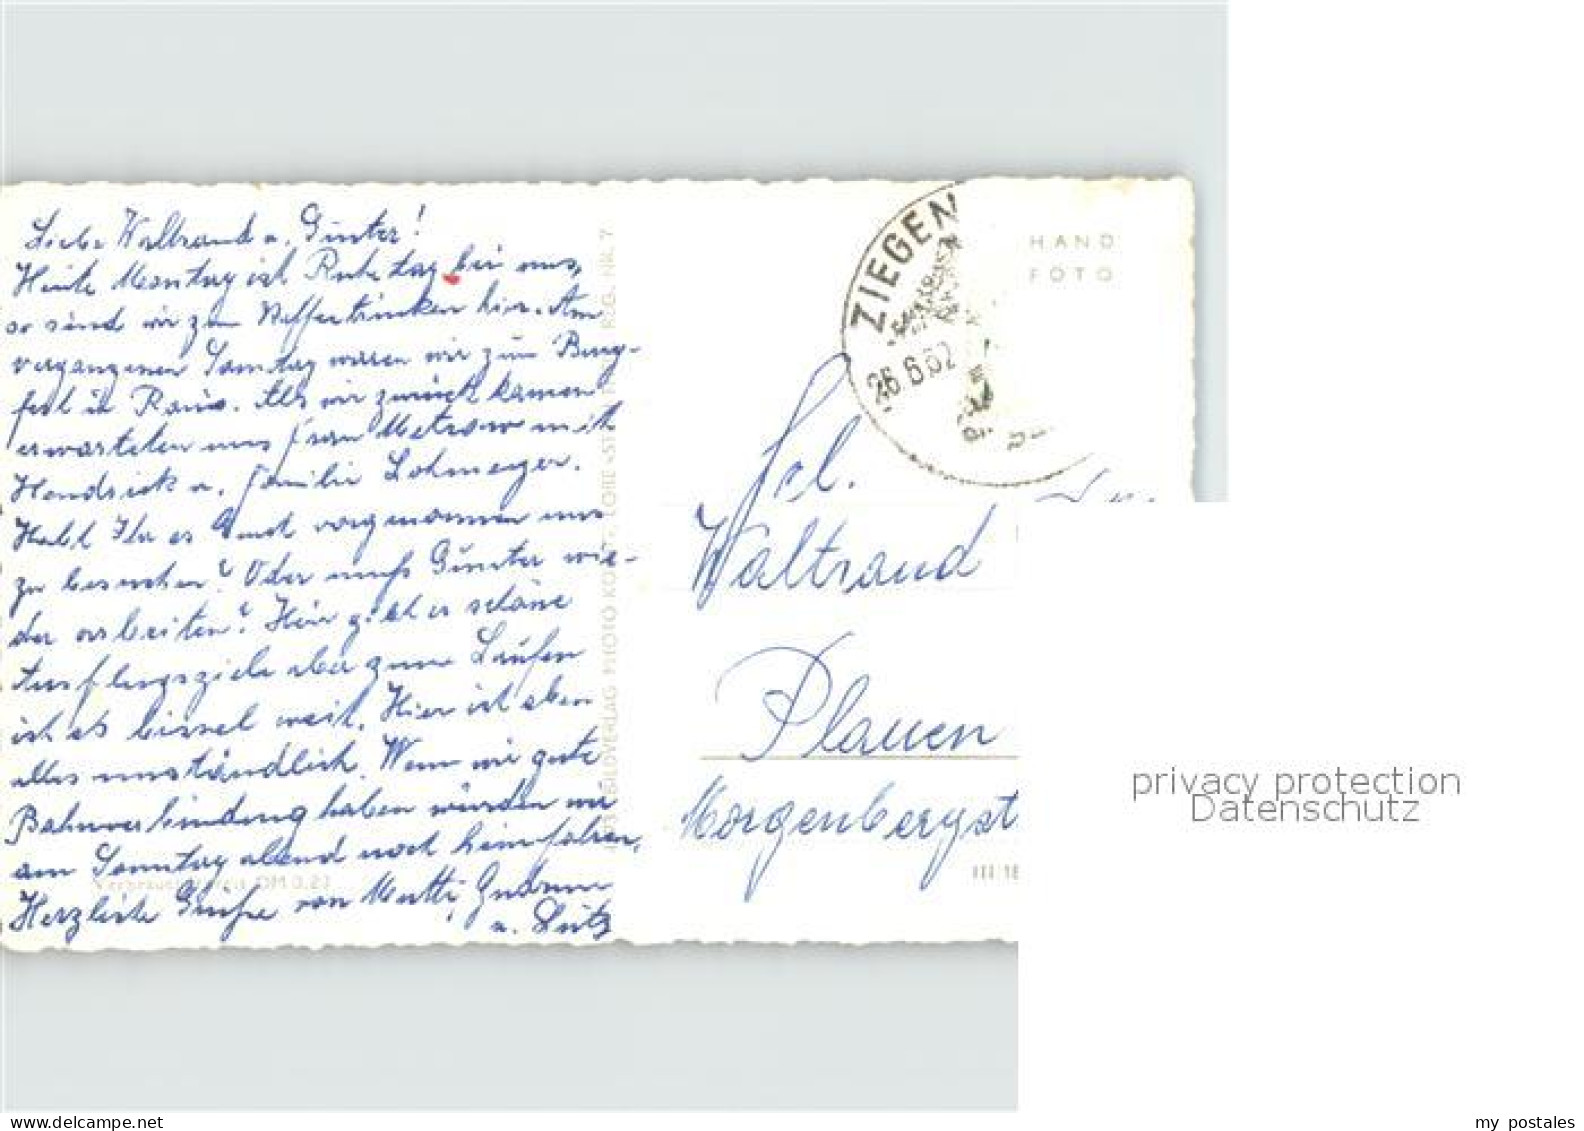 Liebe Waltraud u. Günter!
Heute Montag ist Ruhetag bei uns,
so sind wir zum Kaffeetrinken hier. Am
vergangenen Sonntag waren wir zum Burg-
fest in Ranis. Als wir zurück kamen
erwarteten uns Frau Metrow mit
Hendrick u. Familie Lohmeyer.
Habt Ihr es Euch vorgenommen uns
zu besuchen? Oder muß Günter wie-
der arbeiten? Hier gibt es schöne
Ausflugsziele aber zum Laufen
ist es bissel weit. Hier ist eben
alles umständlich. Wenn wir gute
Bahnverbindung haben würden wir
am Sonntag abend noch heimfahren.
Herzliche Grüße von Mutti, Gudrun
u. Lutz
DM 0.23
BILDVERLAG PHOTO KO REG. NR. 7
ZIEGEN
26.6.62
HAND
FOTO
Frl.
Waltraud
Plauen
Morgenbergst
III 18
privacy protection
Datenschutz
my postales